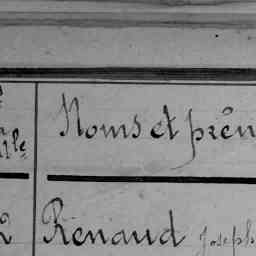 Noms et prén
2 Renaud Joseph